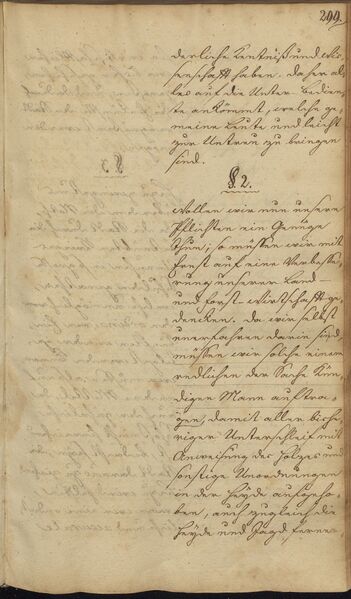 299.
derliche Kentniß und Wis
senschafft haben. daher al
les auf die Unter bedien
te ankömmt, welche ge
meine Leute und leicht
zur Untreu zu bringen
sind.
§. 2.
Wollen wir nun unsere
Pflichten ein Genüge
thun; so müssen wir mit
Ernst auf eine Verbesse
rung unserer Land
und forst-Wirtschafft ge
dencken. Da wir selbst
unerfahren darin sind,
müssen wir solche einem
redlichen der Sache Kün
digen Mann auftra
gen, damit aller bishe
riger Unterschleif mit
Anweisung des Holzes und
sonstige Unordnungen
in der Heyde aufgeho
ben, auch zugleich die
Heyde und Jagd, ferner